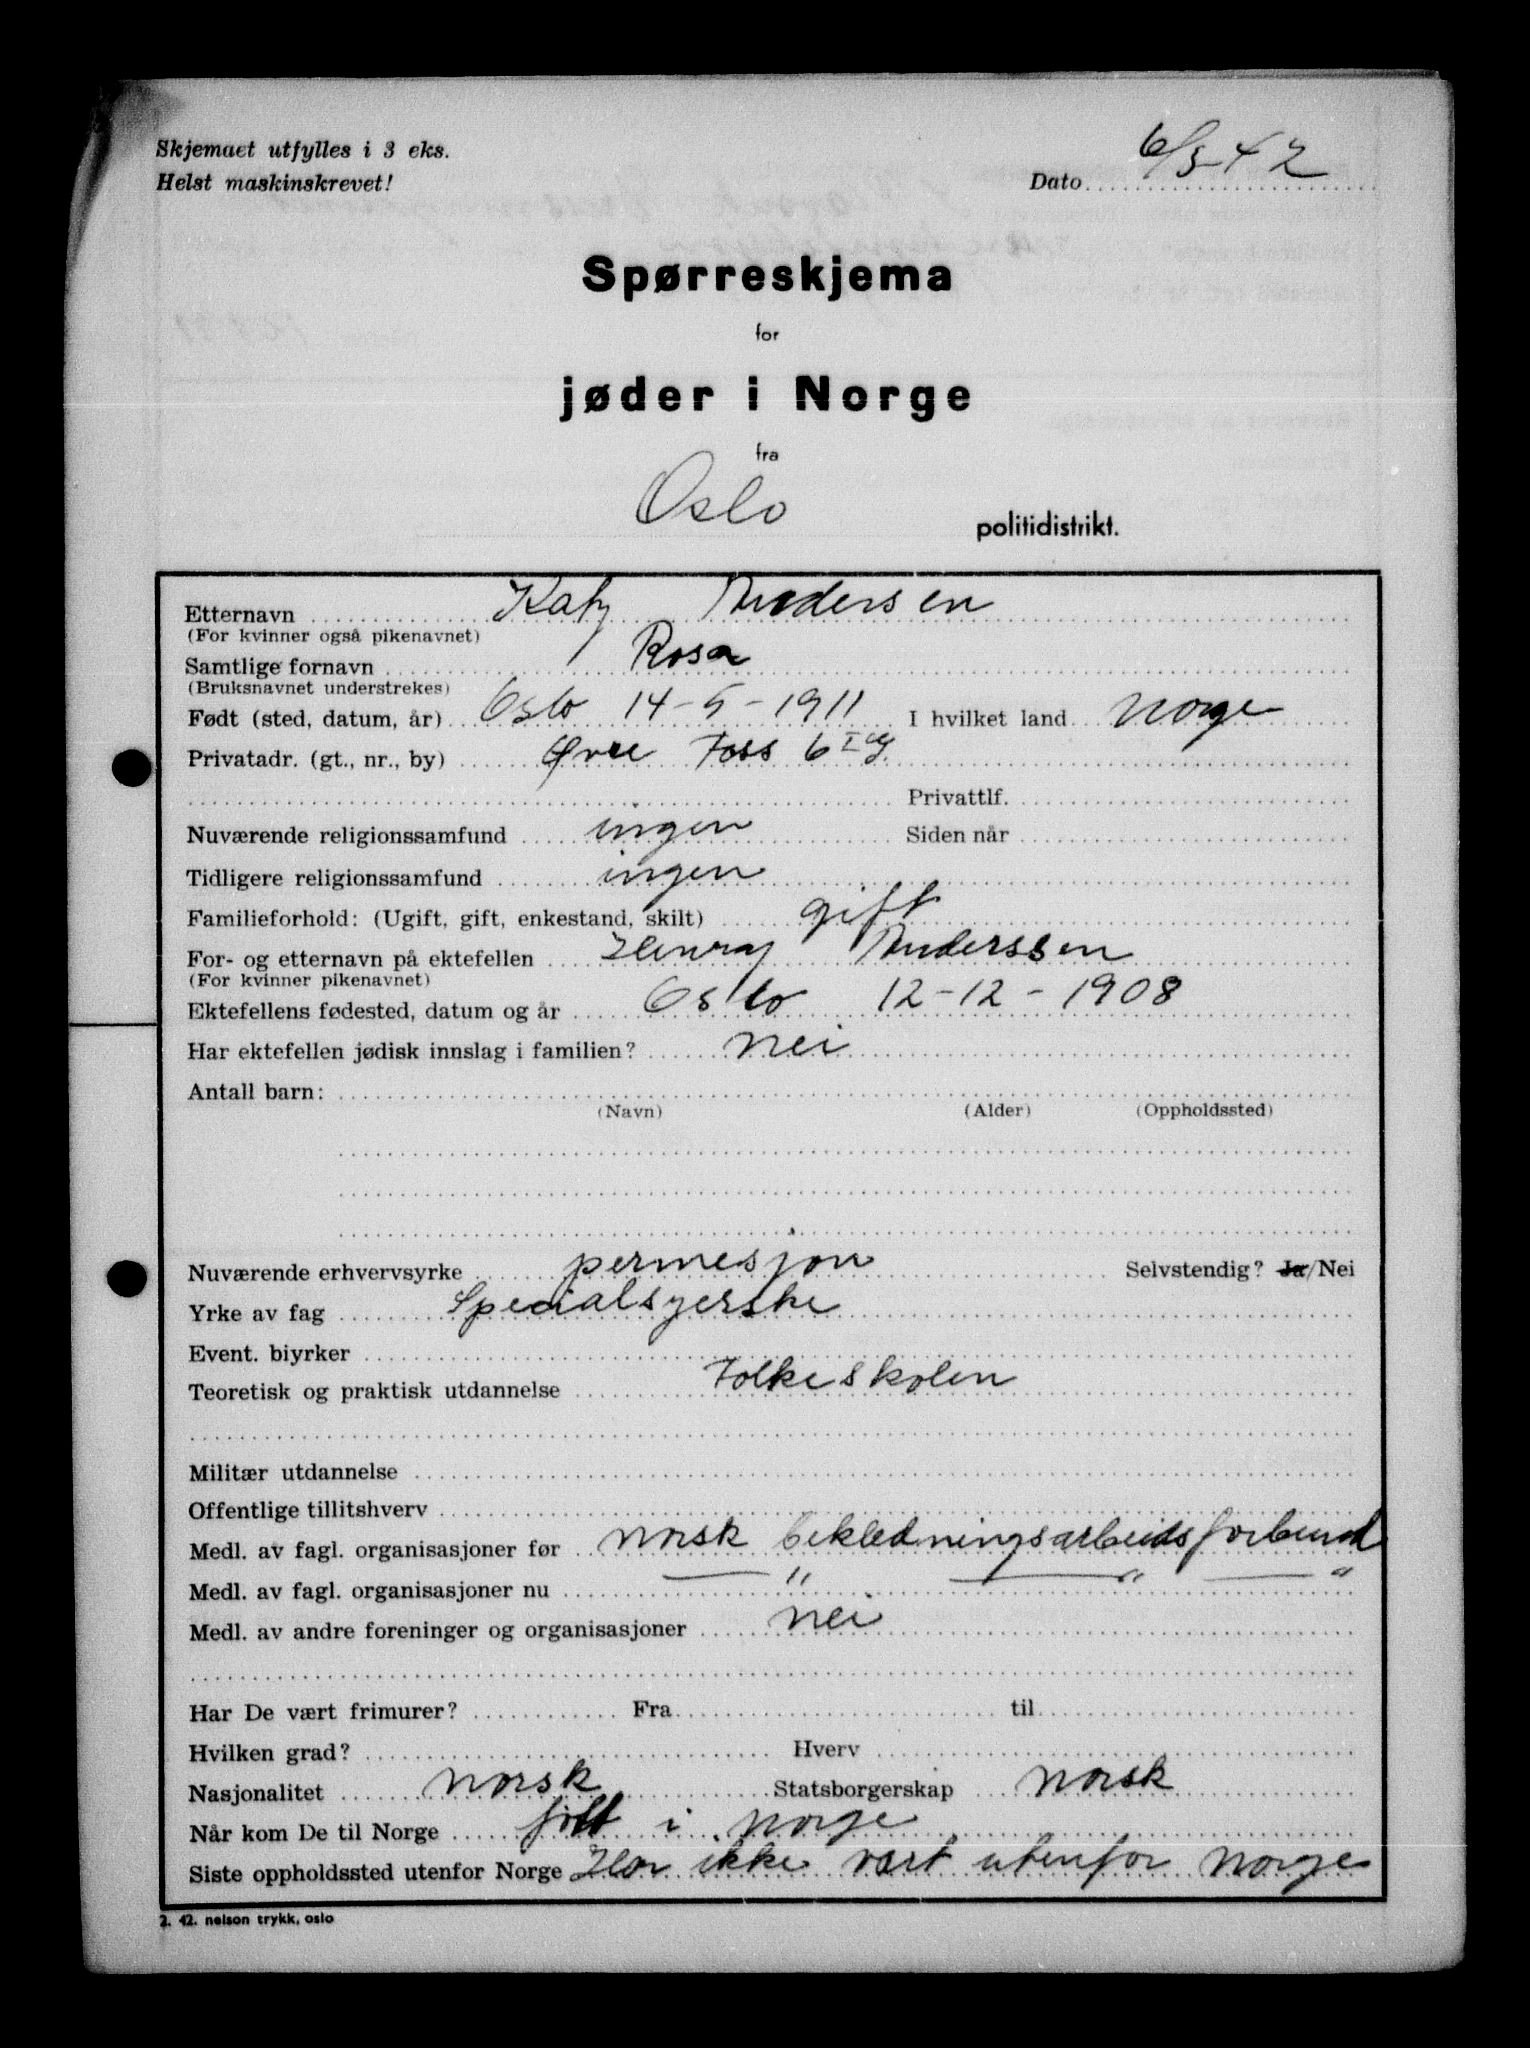 Skjemaet utfylles i 3 eks.
Helst maskinskrevet!
Dato 6/3-42
Spørreskjema
for
jøder i Norge
fra
Oslo politidistrikt.
Etternavn Katz Andersen
(For kvinner også pikenavnet)
Samtlige fornavn Rosa
(Bruksnavnet understrekes)
Født (sted, datum, år) Oslo 14-5-1911 I hvilket land Norge
Privatadr. (gt., nr., by) Øvre Foss 6
Privattlf.
Nuværende religionssamfund ingen Siden når
Tidligere religionssamfund ingen
Familieforhold: (Ugift, gift, enkestand, skilt) gift
For- og etternavn på ektefellen Henry Anderssen
(For kvinner pikenavnet)
Ektefellens fødested, datum og år Oslo 12-12-1908
Har ektefellen jødisk innslag i familien? Nei
Antall barn:
(Navn) (Alder) (Oppholdssted)
Nuværende erhvervsyrke permesjon Selvstendig? Ja/Nei
Yrke av fag Specialsyerske
Event. biyrker
Teoretisk og praktisk utdannelse Folkeskolen
Militær utdannelse
Offentlige tillitshverv
Medl. av fagl. organisasjoner før Norsk bekledningsarbeidsforbund
Medl. av fagl. organisasjoner nu — " — " — "
Medl. av andre foreninger og organisasjoner Nei
Har De vært frimurer? Fra til
Hvilken grad? Hverv
Nasjonalitet Norsk Statsborgerskap Norsk
Når kom De til Norge født i Norge
Siste oppholdssted utenfor Norge Har ikke vært utenfor Norge
2. 42. nelson trykk, oslo